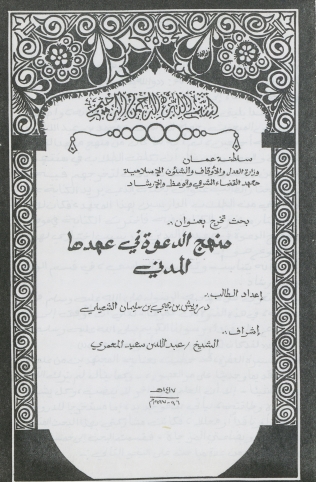 بسم الله الرحمن الرحيم
سلطنة عمان
وزارة العدل والأوقاف والشئون الإسلامية
معهد القضاء الشرعي والوعظ والإرشاد
بحث تخرج بعنوان :-
منهج الدعوة في عهدها
المدني
إعداد الطالب :-
درويش بن يحيى بن سليمان
إشراف :-
الشيخ / عبدالله بن سعيد المعمري
١٤١٧هـ